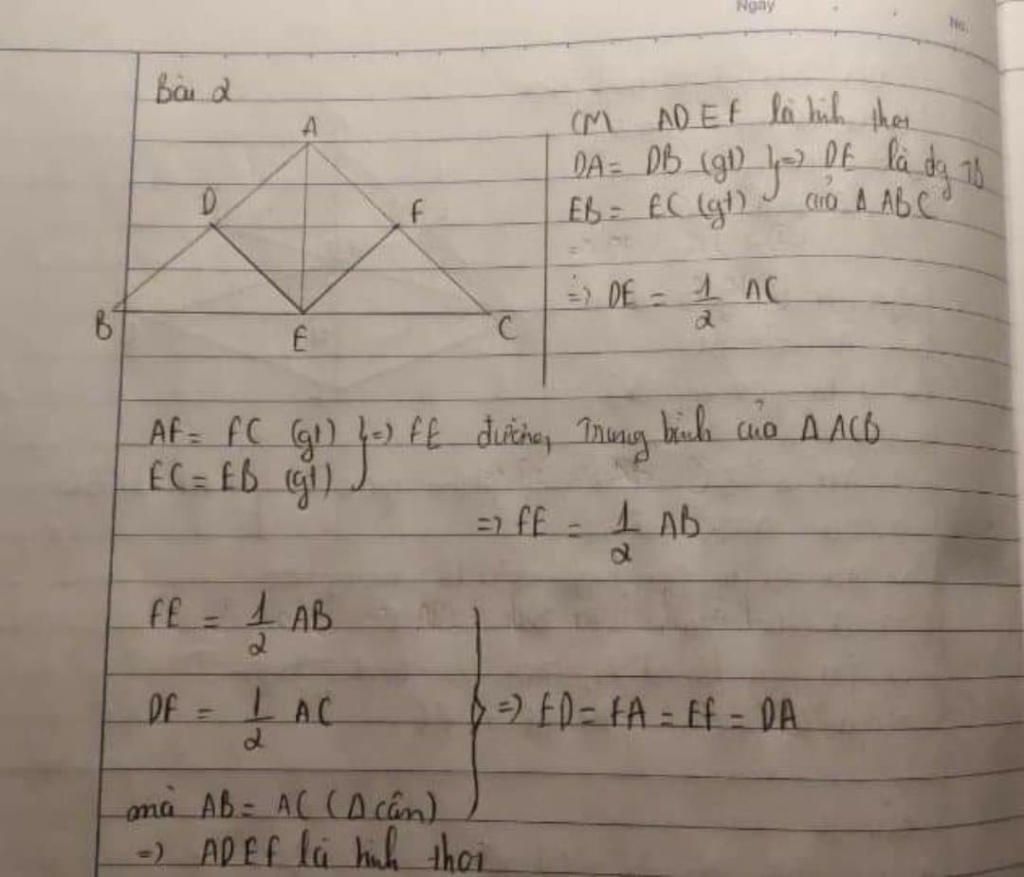 Ngày
No.
Bài 2
A
D
F
B
E
C
CM ADEF là hình thoi
DA = DB (gt) } => DE là đg Tb
EB = EC (gt) của Δ ABC
=> DE = 1/2 AC
AF = FC (gt) } => FE đường trung bình của Δ ACB
EC = EB (gt)
=> FE = 1/2 AB
FE = 1/2 AB
DE = 1/2 AC } => ED = FA = EF = DA
mà AB = AC (Δ cân)
=> ADEF là hình thoi